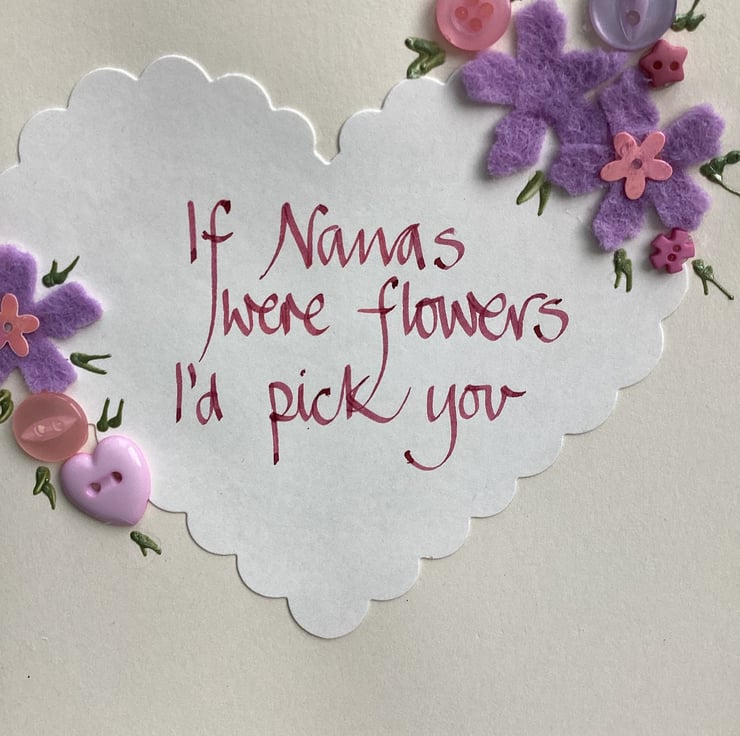 If Nanas
were flowers
I'd pick you